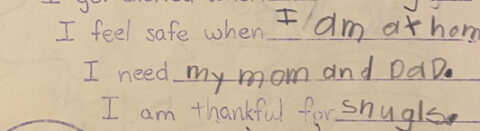 I feel safe when I am at hom
I need my mom and DaD.
I am thankful for snugls.